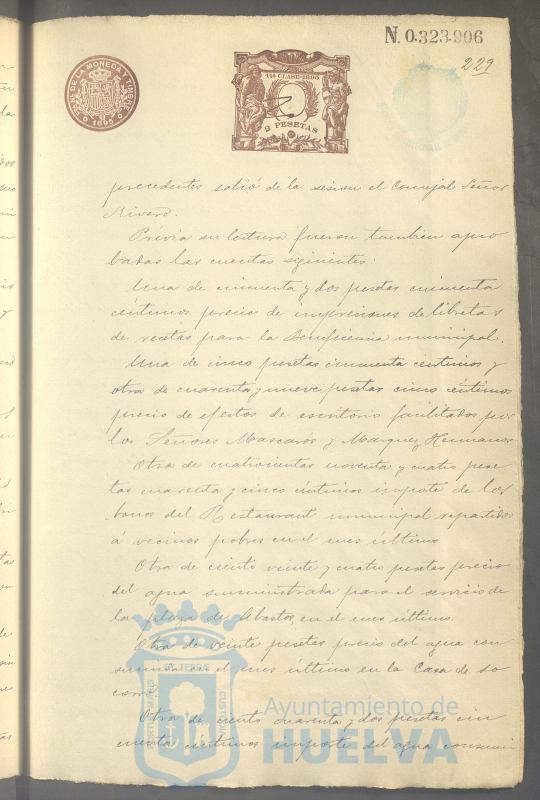 N. 0.323.906
229
FÁB. DE LA MONEDA Y TIMBRE
1895
11ª CLASE-1895
2 PESETAS
precedentes salió de la sesion el Concejal Señor
Rivero.
Prévia su lectura fueron tambien apro
badas las cuentas siguientes:
Una de cincuenta y dos pesetas cincuenta
céntimos precio de impresiones de libretas
de recetas para la Beneficencia municipal.
Una de cinco pesetas cincuenta centimos y
otra de cuarenta y nueve pesetas cinco céntimos
precio de efectos de escritorio facilitados por
los Señores Mascarós y Marquez Hermanos
Otra de cuatrocientas noventa y cuatro pese
tas cuarenta y cinco céntimos impote de los
bonos del Restaurant municipal repartidos
a vecinos pobres en el mes último
Otra de ciento veinte y cuatro pesetas precio
del agua suministrada para el servicio de
la plaza de Abastos, en el mes último.
Otra de veinte pesetas precio del agua con
sumida en el mes último en la Casa de So
corro.
Otra de ciento cuarenta y dos pesetas cin
cuenta céntimos importe del agua consumi
PORTUS MARIS
ET TERRE
CUSTODIA
Ayuntamiento de
HUELVA